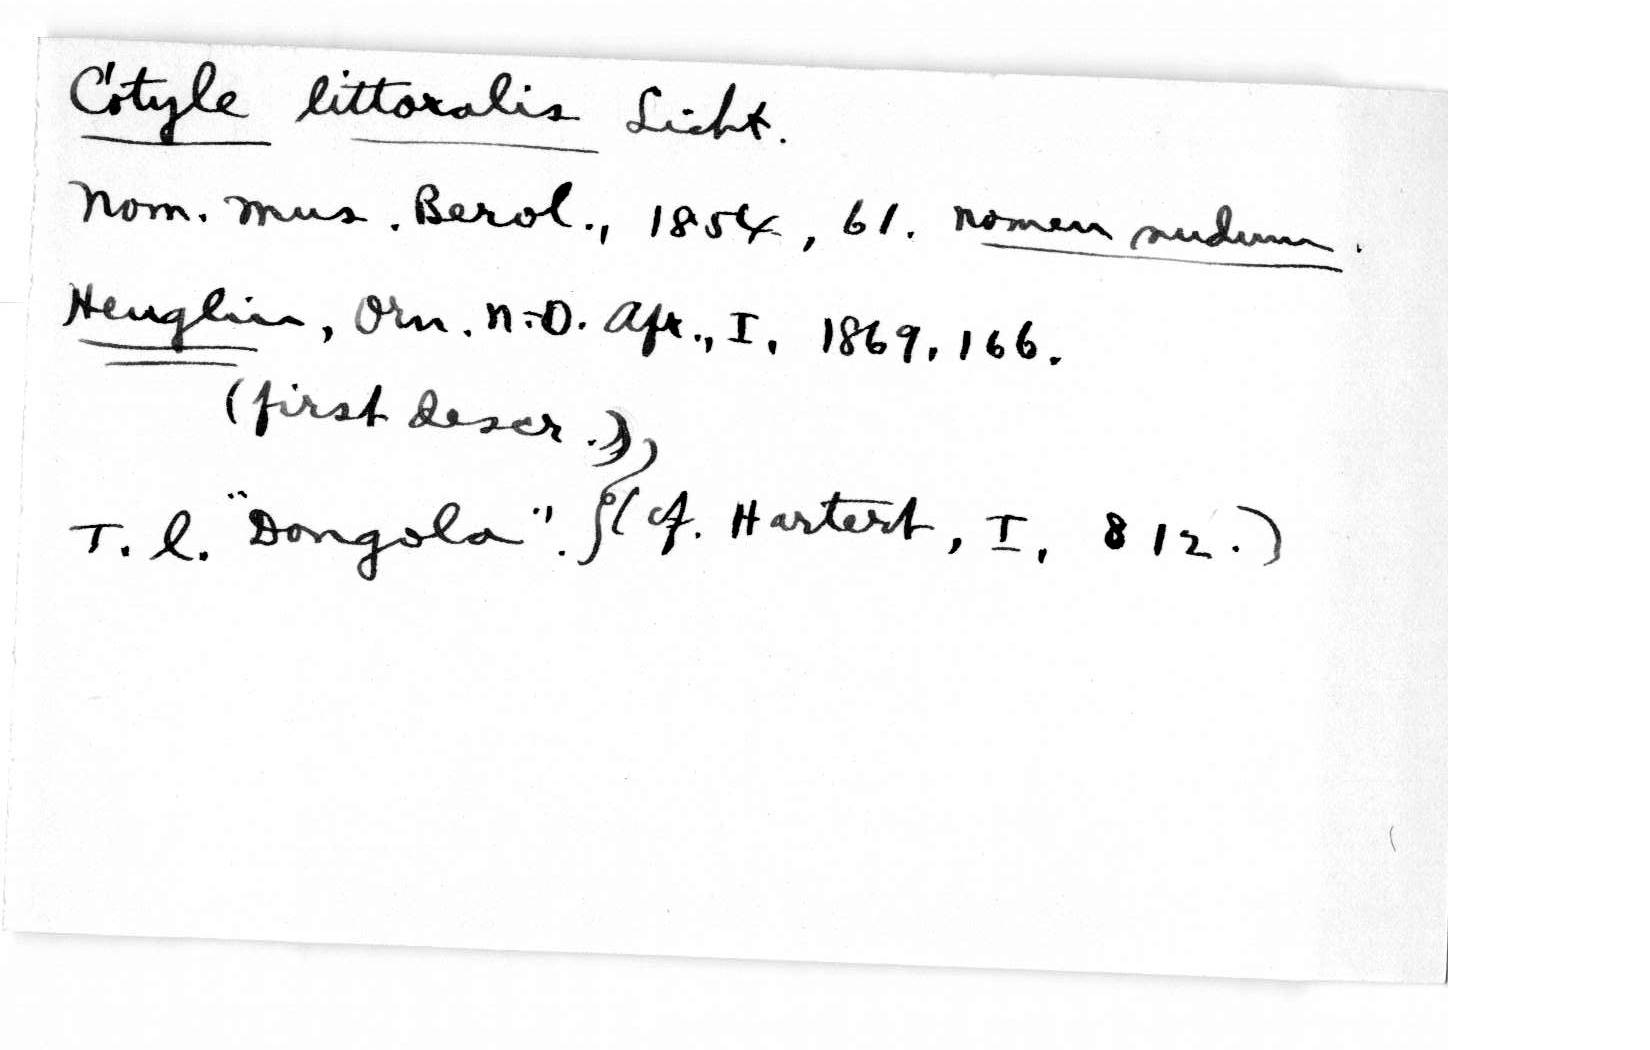 Cotyle littoralis Licht.
Nom. Mus. Berol., 1854, 61. nomen nudum.
Heuglin, Orn. N.-O. Afr., I, 1869, 166.
(first descr.),
T. l. "Dongola". (cf. Hartert, I, 812.)